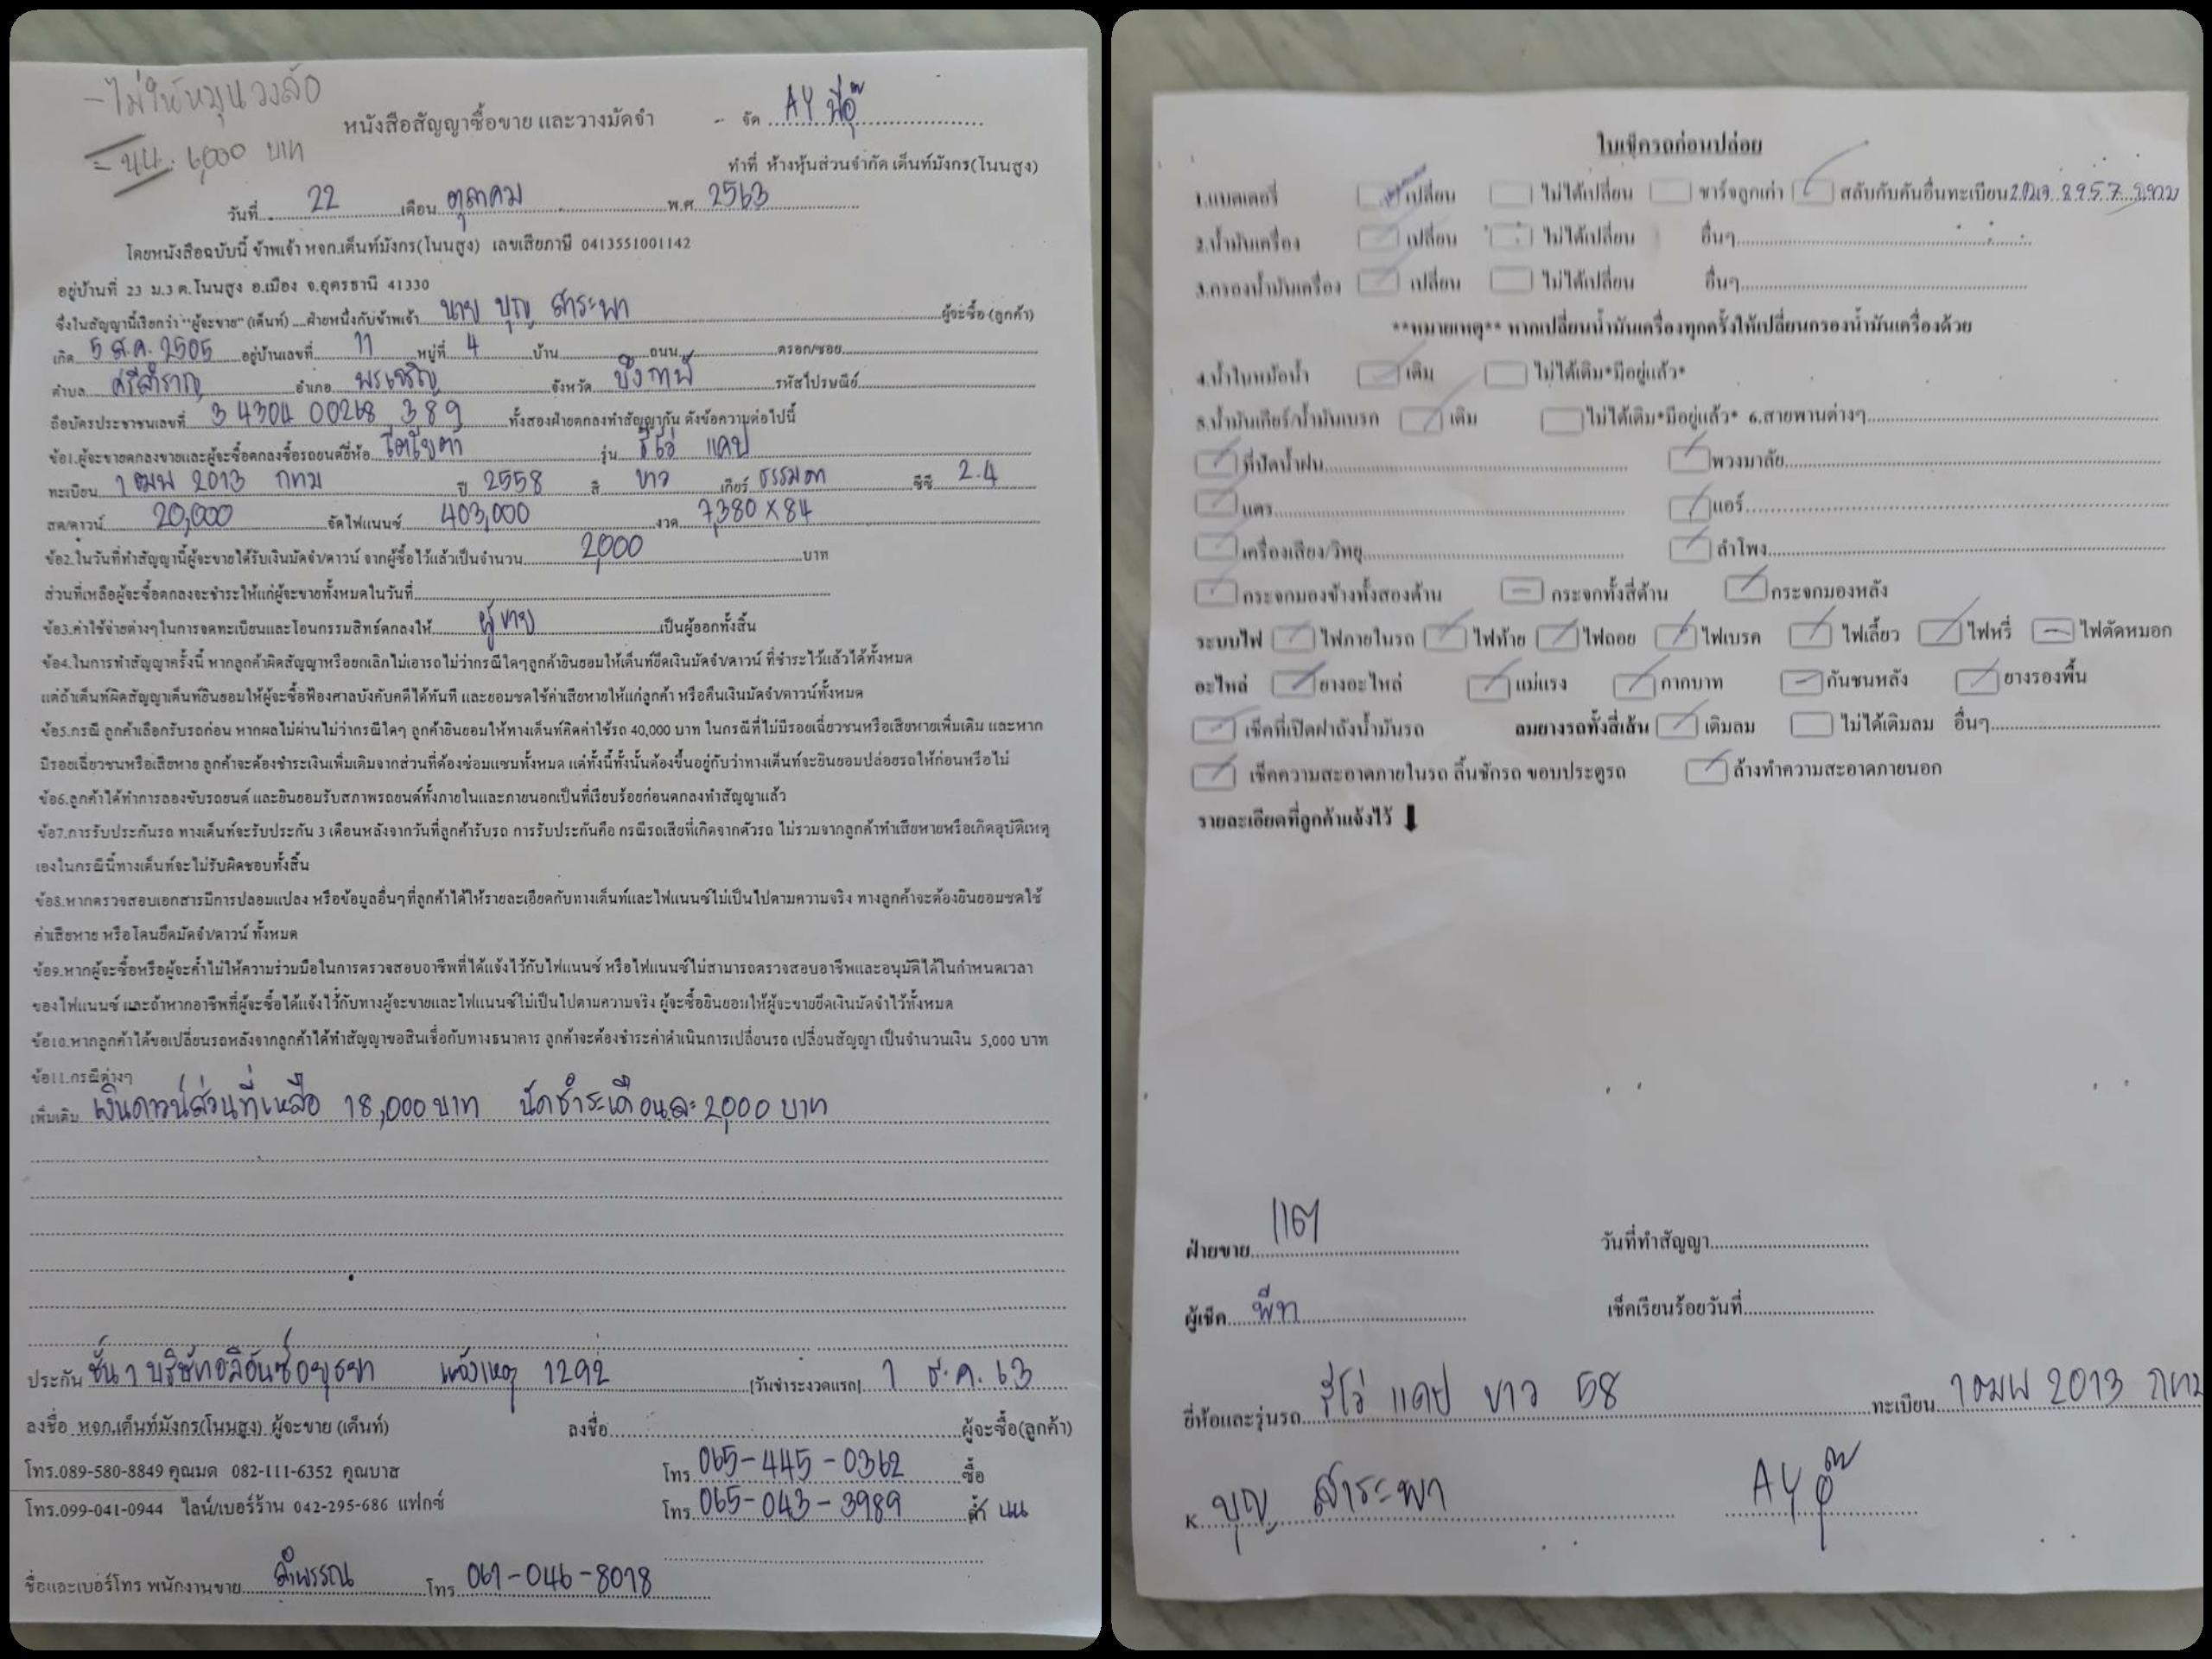 -ไม่ให้หมุนวงล้อ
= นน. 6,000 บาท
หนังสือสัญญาซื้อขาย และวางมัดจำ
- จัด AY พี่อุ๊
ทำที่ ห้างหุ้นส่วนจำกัด เต็นท์มังกร(โนนสูง)
วันที่ 22 เดือน ตุลาคม พ.ศ. 2563
โดยหนังสือฉบับนี้ ข้าพเจ้า หจก.เต็นท์มังกร(โนนสูง) เลขเสียภาษี 0413551001142
อยู่บ้านที่ 23 ม.3 ต.โนนสูง อ.เมือง จ.อุดรธานี 41330
ซึ่งในสัญญานี้เรียกว่า "ผู้จะขาย" (เต็นท์) ....ฝ่ายหนึ่งกับข้าพเจ้า นาย บุญ สาระพา ผู้จะซื้อ (ลูกค้า)
เกิด 5 ส.ค. 2505 อยู่บ้านเลขที่ 11 หมู่ที่ 4 บ้าน ถนน ตรอก/ซอย
ตำบล ศรีสำราญ อำเภอ พรเจริญ จังหวัด บึงกาฬ รหัสไปรษณีย์
ถือบัตรประชาชนเลขที่ 3 4304 00268 389 ทั้งสองฝ่ายตกลงทำสัญญากัน ดังข้อความต่อไปนี้
ข้อ1.ผู้จะขายตกลงขายและผู้จะซื้อตกลงซื้อรถยนต์ยี่ห้อ โตโยต้า รุ่น รีโว่ แคป
ทะเบียน 1ฒพ 2013 กทม ปี 2558 สี ขาว เกียร์ ธรรมดา ซีซี 2.4
สด/ดาวน์ 20,000 จัดไฟแนนซ์ 403,000 งวด 7,380 x 84
ข้อ2.ในวันที่ทำสัญญานี้ผู้จะขายได้รับเงินมัดจำ/ดาวน์ จากผู้ซื้อไว้แล้วเป็นจำนวน 2,000 บาท
ส่วนที่เหลือผู้จะซื้อตกลงจะชำระให้แก่ผู้จะขายทั้งหมดในวันที่
ข้อ3.ค่าใช้จ่ายต่างๆในการจดทะเบียนและโอนกรรมสิทธ์ตกลงให้ ผู้ขาย เป็นผู้ออกทั้งสิ้น
ข้อ4.ในการทำสัญญาครั้งนี้ หากลูกค้าผิดสัญญาหรือยกเลิกไม่เอารถไม่ว่ากรณีใดๆลูกค้ายินยอมให้เต็นท์ยึดเงินมัดจำ/ดาวน์ ที่ชำระไว้แล้วได้ทั้งหมด
แต่ถ้าเต็นท์ผิดสัญญาเต็นท์ยินยอมให้ผู้จะซื้อฟ้องศาลบังคับคดีได้ทันที และยอมชดใช้ค่าเสียหายให้แก่ลูกค้า หรือคืนเงินมัดจำ/ดาวน์ทั้งหมด
ข้อ5.กรณี ลูกค้าเลือกรับรถก่อน หากผลไม่ผ่านไม่ว่ากรณีใดๆ ลูกค้ายินยอมให้ทางเต็นท์คิดค่าใช้รถ 40,000 บาท ในกรณีที่ไม่มีรอยเฉี่ยวชนหรือเสียหายเพิ่มเติม และหาก
มีรอยเฉี่ยวชนหรือเสียหาย ลูกค้าจะต้องชำระเงินเพิ่มเติมจากส่วนที่ต้องซ่อมแซมทั้งหมด แต่ทั้งนี้ทั้งนั้นต้องขึ้นอยู่กับว่าทางเต็นท์จะยินยอมปล่อยรถให้ก่อนหรือไม่
ข้อ6.ลูกค้าได้ทำการลองขับรถยนต์ และยินยอมรับสภาพรถยนต์ทั้งภายในและภายนอกเป็นที่เรียบร้อยก่อนตกลงทำสัญญาแล้ว
ข้อ7.การรับประกันรถ ทางเต็นท์จะรับประกัน 3 เดือนหลังจากวันที่ลูกค้ารับรถ การรับประกันคือ กรณีรถเสียที่เกิดจากตัวรถ ไม่รวมจากลูกค้าทำเสียหายหรือเกิดอุบัติเหตุ
เองในกรณีนี้ทางเต็นท์จะไม่รับผิดชอบทั้งสิ้น
ข้อ8.หากตรวจสอบเอกสารมีการปลอมแปลง หรือข้อมูลอื่นๆที่ลูกค้าได้ให้รายละเอียดกับทางเต็นท์และไฟแนนซ์ไม่เป็นไปตามความจริง ทางลูกค้าจะต้องยินยอมชดใช้
ค่าเสียหาย หรือโดนยึดมัดจำ/ดาวน์ ทั้งหมด
ข้อ9.หากผู้จะซื้อหรือผู้จะค้ำไม่ให้ความร่วมมือในการตรวจสอบอาชีพที่ได้แจ้งไว้กับไฟแนนซ์ หรือไฟแนนซ์ไม่สามารถตรวจสอบอาชีพและอนุมัติได้ในกำหนดเวลา
ของไฟแนนซ์ และถ้าหากอาชีพที่ผู้จะซื้อได้แจ้งไว้กับทางผู้จะขายและไฟแนนซ์ไม่เป็นไปตามความจริง ผู้จะซื้อยินยอมให้ผู้จะขายยึดเงินมัดจำไว้ทั้งหมด
ข้อ10.หากลูกค้าได้ขอเปลี่ยนรถหลังจากลูกค้าได้ทำสัญญาขอสินเชื่อกับทางธนาคาร ลูกค้าจะต้องชำระค่าดำเนินการเปลี่ยนรถ เปลี่ยนสัญญา เป็นจำนวนเงิน 5,000 บาท
ข้อ11.กรณีต่างๆ
เพิ่มเติม เงินดาวน์ส่วนที่เหลือ 18,000 บาท นัดชำระเดือนละ 2,000 บาท
ประกัน ชั้น 1 บริษัทอลิอันซ์อยุธยา แจ้งเหตุ 1292 [วันชำระงวดแรก] 1 ธ.ค. 63
ลงชื่อ หจก.เต็นท์มังกร(โนนสูง) ผู้จะขาย (เต็นท์) ลงชื่อ ผู้จะซื้อ(ลูกค้า)
โทร.089-580-8849 คุณมด 082-111-6352 คุณบาส โทร 065-445-0362 ซื้อ
โทร.099-041-0944 ไลน์/เบอร์ร้าน 042-295-686 แฟกซ์ โทร 065-043-3989 ค้ำ นน
ชื่อและเบอร์โทร พนักงานขาย ลำพรรณ โทร 061-046-8018
ใบเช็ครถก่อนปล่อย
1.แบตเตอรี่ เปลี่ยน ไม่ได้เปลี่ยน ชาร์จลูกเก่า สลับกับคันอื่นทะเบียน
2.น้ำมันเครื่อง เปลี่ยน ไม่ได้เปลี่ยน อื่นๆ
3.กรองน้ำมันเครื่อง เปลี่ยน ไม่ได้เปลี่ยน อื่นๆ
**หมายเหตุ** หากเปลี่ยนน้ำมันเครื่องทุกครั้งให้เปลี่ยนกรองน้ำมันเครื่องด้วย
4.น้ำในหม้อน้ำ เติม ไม่ได้เติม*มีอยู่แล้ว*
5.น้ำมันเกียร์/น้ำมันเบรค เติม ไม่ได้เติม*มีอยู่แล้ว* 6.สายพานต่างๆ
ที่ปัดน้ำฝน พวงมาลัย
แตร แอร์
เครื่องเสียง/วิทยุ ลำโพง
กระจกมองข้างทั้งสองด้าน กระจกทั้งสี่ด้าน กระจกมองหลัง
ระบบไฟ ไฟภายในรถ ไฟท้าย ไฟถอย ไฟเบรค ไฟเลี้ยว ไฟหรี่ ไฟตัดหมอก
อะไหล่ ยางอะไหล่ แม่แรง กากบาท กันชนหลัง ยางรองพื้น
เช็คที่เปิดฝาถังน้ำมันรถ ลมยางรถทั้งสี่เส้น เติมลม ไม่ได้เติมลม อื่นๆ
เช็คความสะอาดภายในรถ ลิ้นชักรถ ขอบประตูรถ ล้างทำความสะอาดภายนอก
รายละเอียดที่ลูกค้าแจ้งไว้
ฝ่ายขาย แต วันที่ทำสัญญา
ผู้เช็ค พีท เช็คเรียบร้อยวันที่
ยี่ห้อและรุ่นรถ รีโว่ แคป ขาว 58 ทะเบียน 1ฒพ 2013 กทม
K. บุญ สาระพา AY อุ๊